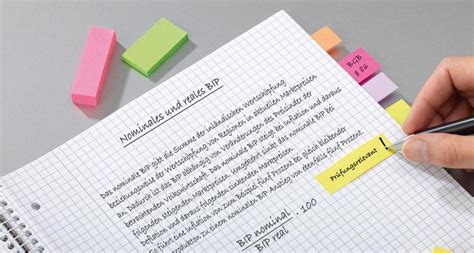 Nominales und reales BIP
Das nominale BIP gibt die Summe der inländischen Wertschöpfung
beziehungsweise der Wertschöpfung von Regionen in aktuellen Marktpreisen
an. Dadurch ist das BIP abhängig von Veränderungen des Preisindex der
betrachtenden Volkswirtschaft. Das nominale BIP steigt bei Inflation und daraus
folgenden steigenden Marktpreisen. Umgekehrt sinkt das nominale BIP bei
Deflation und daraus folgenden sinkenden Marktpreisen.
So führt eine Inflation von zum Beispiel fünf Prozent bei gleich bleibender
zu einem nominalen BIP Anstieg von ebenfalls fünf Prozent
BIP nominal
BIP real
· 100
Prüfungsrelevant !
BGB
§ 26